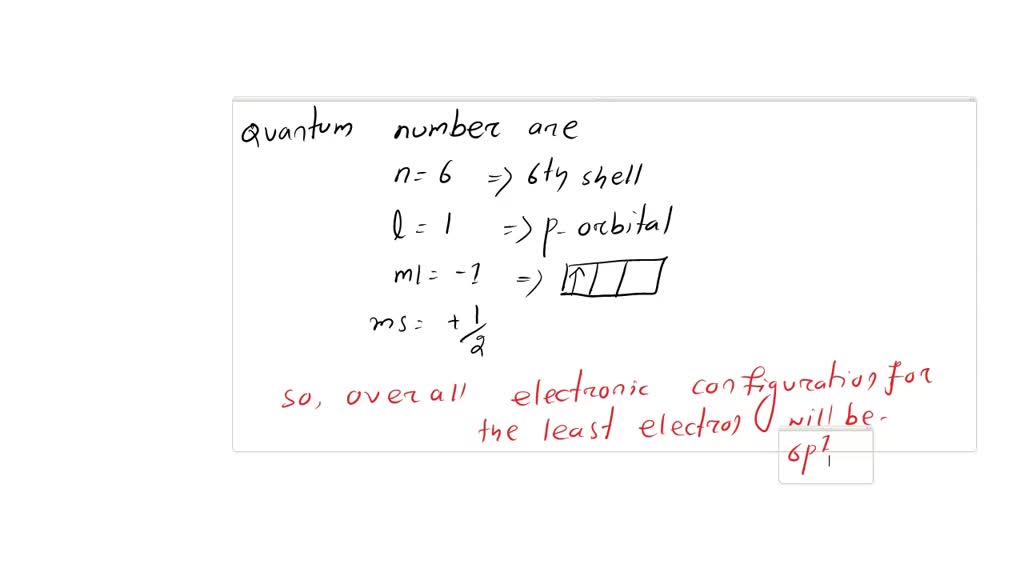 Quantum number are
n = 6 => 6th shell
l = 1 => p- orbital
ml = -1 =>
ms = + 1/2
so, overall electronic configuration for
the least electron will be-
6p1